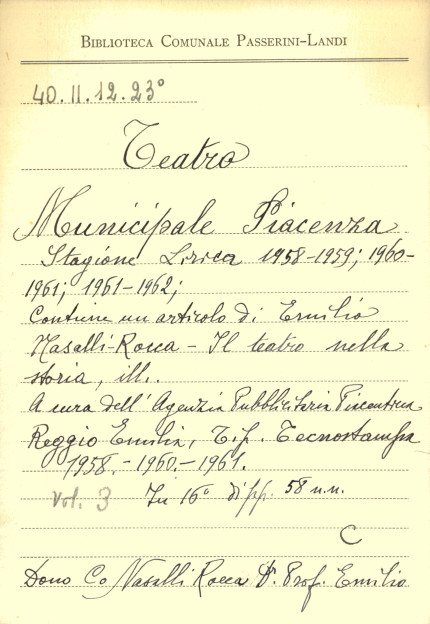 BIBLIOTECA COMUNALE PASSERINI-LANDI
40.II.12.23°
Teatro
Municipale Piacenza
Stagione Lirica 1958-1959; 1960-
1961; 1961-1962;
Contiene un articolo di Emilio
Nasalli-Rocca - Il teatro nella
storia, ill..
A cura dell'Agenzia Pubblicitaria Piacentina
Reggio Emilia, Tip. Tecnostampa
1958.-1960.-1961.
Vol. 3 In 16° di pp. 58 n.n.
C
Dono Co Nasalli Rocca Dr. Prof. Emilio